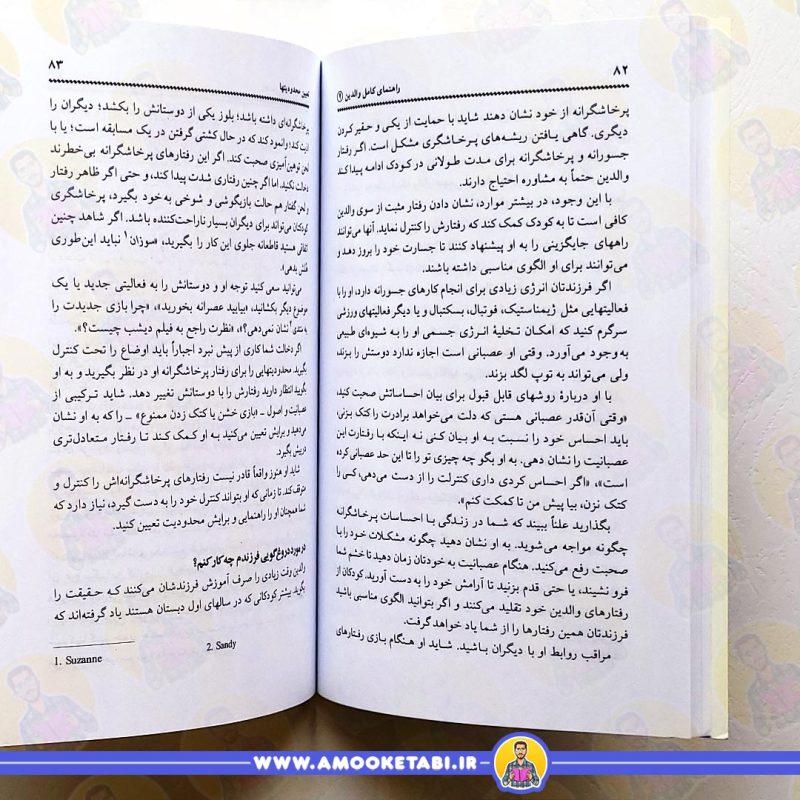 ۸۲
راهنمای کامل والدین (۲)
پرخاشگرانه از خود نشان دهند شاید با حمایت از یکی و حقیر کردن
دیگری. گاهی یافتن ریشه‌های پرخاشگری مشکل است. اگر رفتار
جسورانه و پرخاشگرانه برای مدت طولانی در کودک ادامه پیدا کند
والدین حتماً به مشاوره احتیاج دارند.
با این وجود، در بیشتر موارد، نشان دادن رفتار مثبت از سوی والدین
کافی است تا به کودک کمک کند که رفتارش را کنترل نماید. آنها می‌توانند
راههای جایگزینی را به او پیشنهاد کنند تا جسارت خود را بروز دهد و
می‌توانند برای او الگوی مناسبی داشته باشند.
اگر فرزندتان انرژی زیادی برای انجام کارهای جسورانه دارد، او را با
فعالیتهایی مثل ژیمناستیک، فوتبال، بسکتبال و یا دیگر فعالیتهای ورزشی
سرگرم کنید که امکان تخلیهٔ انرژی جسمی او را به شیوه‌ای طبیعی
به وجود می‌آورد. وقتی او عصبانی است اجازه ندارد دوستش را بزند،
ولی می‌تواند به توپ لگد بزند.
با او دربارهٔ روشهای قابل قبول برای بیان احساساتش صحبت کنید،
«وقتی آن‌قدر عصبانی هستی که دلت می‌خواهد برادرت را کتک بزنی،
باید احساس خود را نسبت به او بیان کنی نه اینکه با رفتارت این
عصبانیت را نشان دهی. به او بگو چه چیزی تو را تا این حد عصبانی کرده
است»، «اگر احساس کردی داری کنترلت را از دست می‌دهی، کسی را
کتک نزن، بیا پیش من تا کمکت کنم».
بگذارید علناً ببیند که شما در زندگی با احساسات پرخاشگرانه
چگونه مواجه می‌شوید. به او نشان دهید چگونه مشکلات خود را با
صحبت رفع می‌کنید. هنگام عصبانیت به خودتان زمان دهید تا خشم شما
فرو نشیند، یا حتی قدم بزنید تا آرامش خود را به دست آورید. کودکان از
رفتارهای والدین خود تقلید می‌کنند و اگر بتوانید الگوی مناسبی باشید
فرزندتان همین رفتارها را از شما یاد خواهد گرفت.
مراقب روابط او با دیگران باشید. شاید او هنگام بازی رفتارهای
تعیین محدودیتها
۸۳
پرخاشگرانه‌ای داشته باشد؛ بلوز یکی از دوستانش را بکشد؛ دیگران را
اذیت کند؛ وانمود کند که در حال کشتی گرفتن در یک مسابقه است؛ یا با
لحن توهین‌آمیزی صحبت کند. اگر این رفتارهای پرخاشگرانه بی‌خطرند
دخالت نکنید، اما اگر چنین رفتاری شدت پیدا کند، و حتی اگر ظاهر رفتار
و لحن گفتار هم حالت بازیگوشی و شوخی به‌خود بگیرد، پرخاشگری
کودکان می‌تواند برای دیگران بسیار ناراحت‌کننده باشد. اگر شاهد چنین
اتفاقی هستید قاطعانه جلوی این کار را بگیرید، «سوزان۱ نباید این‌طوری
هُلش بدهی».
می‌توانید سعی کنید توجه او و دوستانش را به فعالیتی جدید یا یک
موضوع دیگر بکشانید، «بیایید عصرانه بخورید»، «چرا بازی جدیدت را
به سندی۲ نشان نمی‌دهی؟»، «نظرت راجع به فیلم دیشب چیست؟».
اگر دخالت شما کاری از پیش نبرد اجباراً باید اوضاع را تحت کنترل
بگیرید. محدودیتهایی را برای رفتار پرخاشگرانه او در نظر بگیرید و به او
بگویید انتظار دارید رفتارش را با دوستانش تغییر دهد. شاید ترکیبی از
عصبانیت و اصول ـ «بازی خشن یا کتک زدن ممنوع» ـ را که به او نشان
می‌دهید و برایش تعیین می‌کنید به او کمک کند تا رفتار متعادل‌تری
در پیش بگیرد.
شاید او هنوز واقعاً قادر نیست رفتارهای پرخاشگرانه‌اش را کنترل و
متوقف کند. تا زمانی که او بتواند کنترل خود را به دست گیرد، نیاز دارد که
شما همچنان او را راهنمایی و برایش محدودیت تعیین کنید.
در مورد دروغ‌گویی فرزندم چه کار کنم؟
والدین وقت زیادی را صرف آموزش فرزندشان می‌کنند که حقیقت را
بگوید. بیشتر کودکانی که در سالهای اول دبستان هستند یاد گرفته‌اند که
1. Suzanne 2. Sandy
WWW.AMOOKETABI.IR